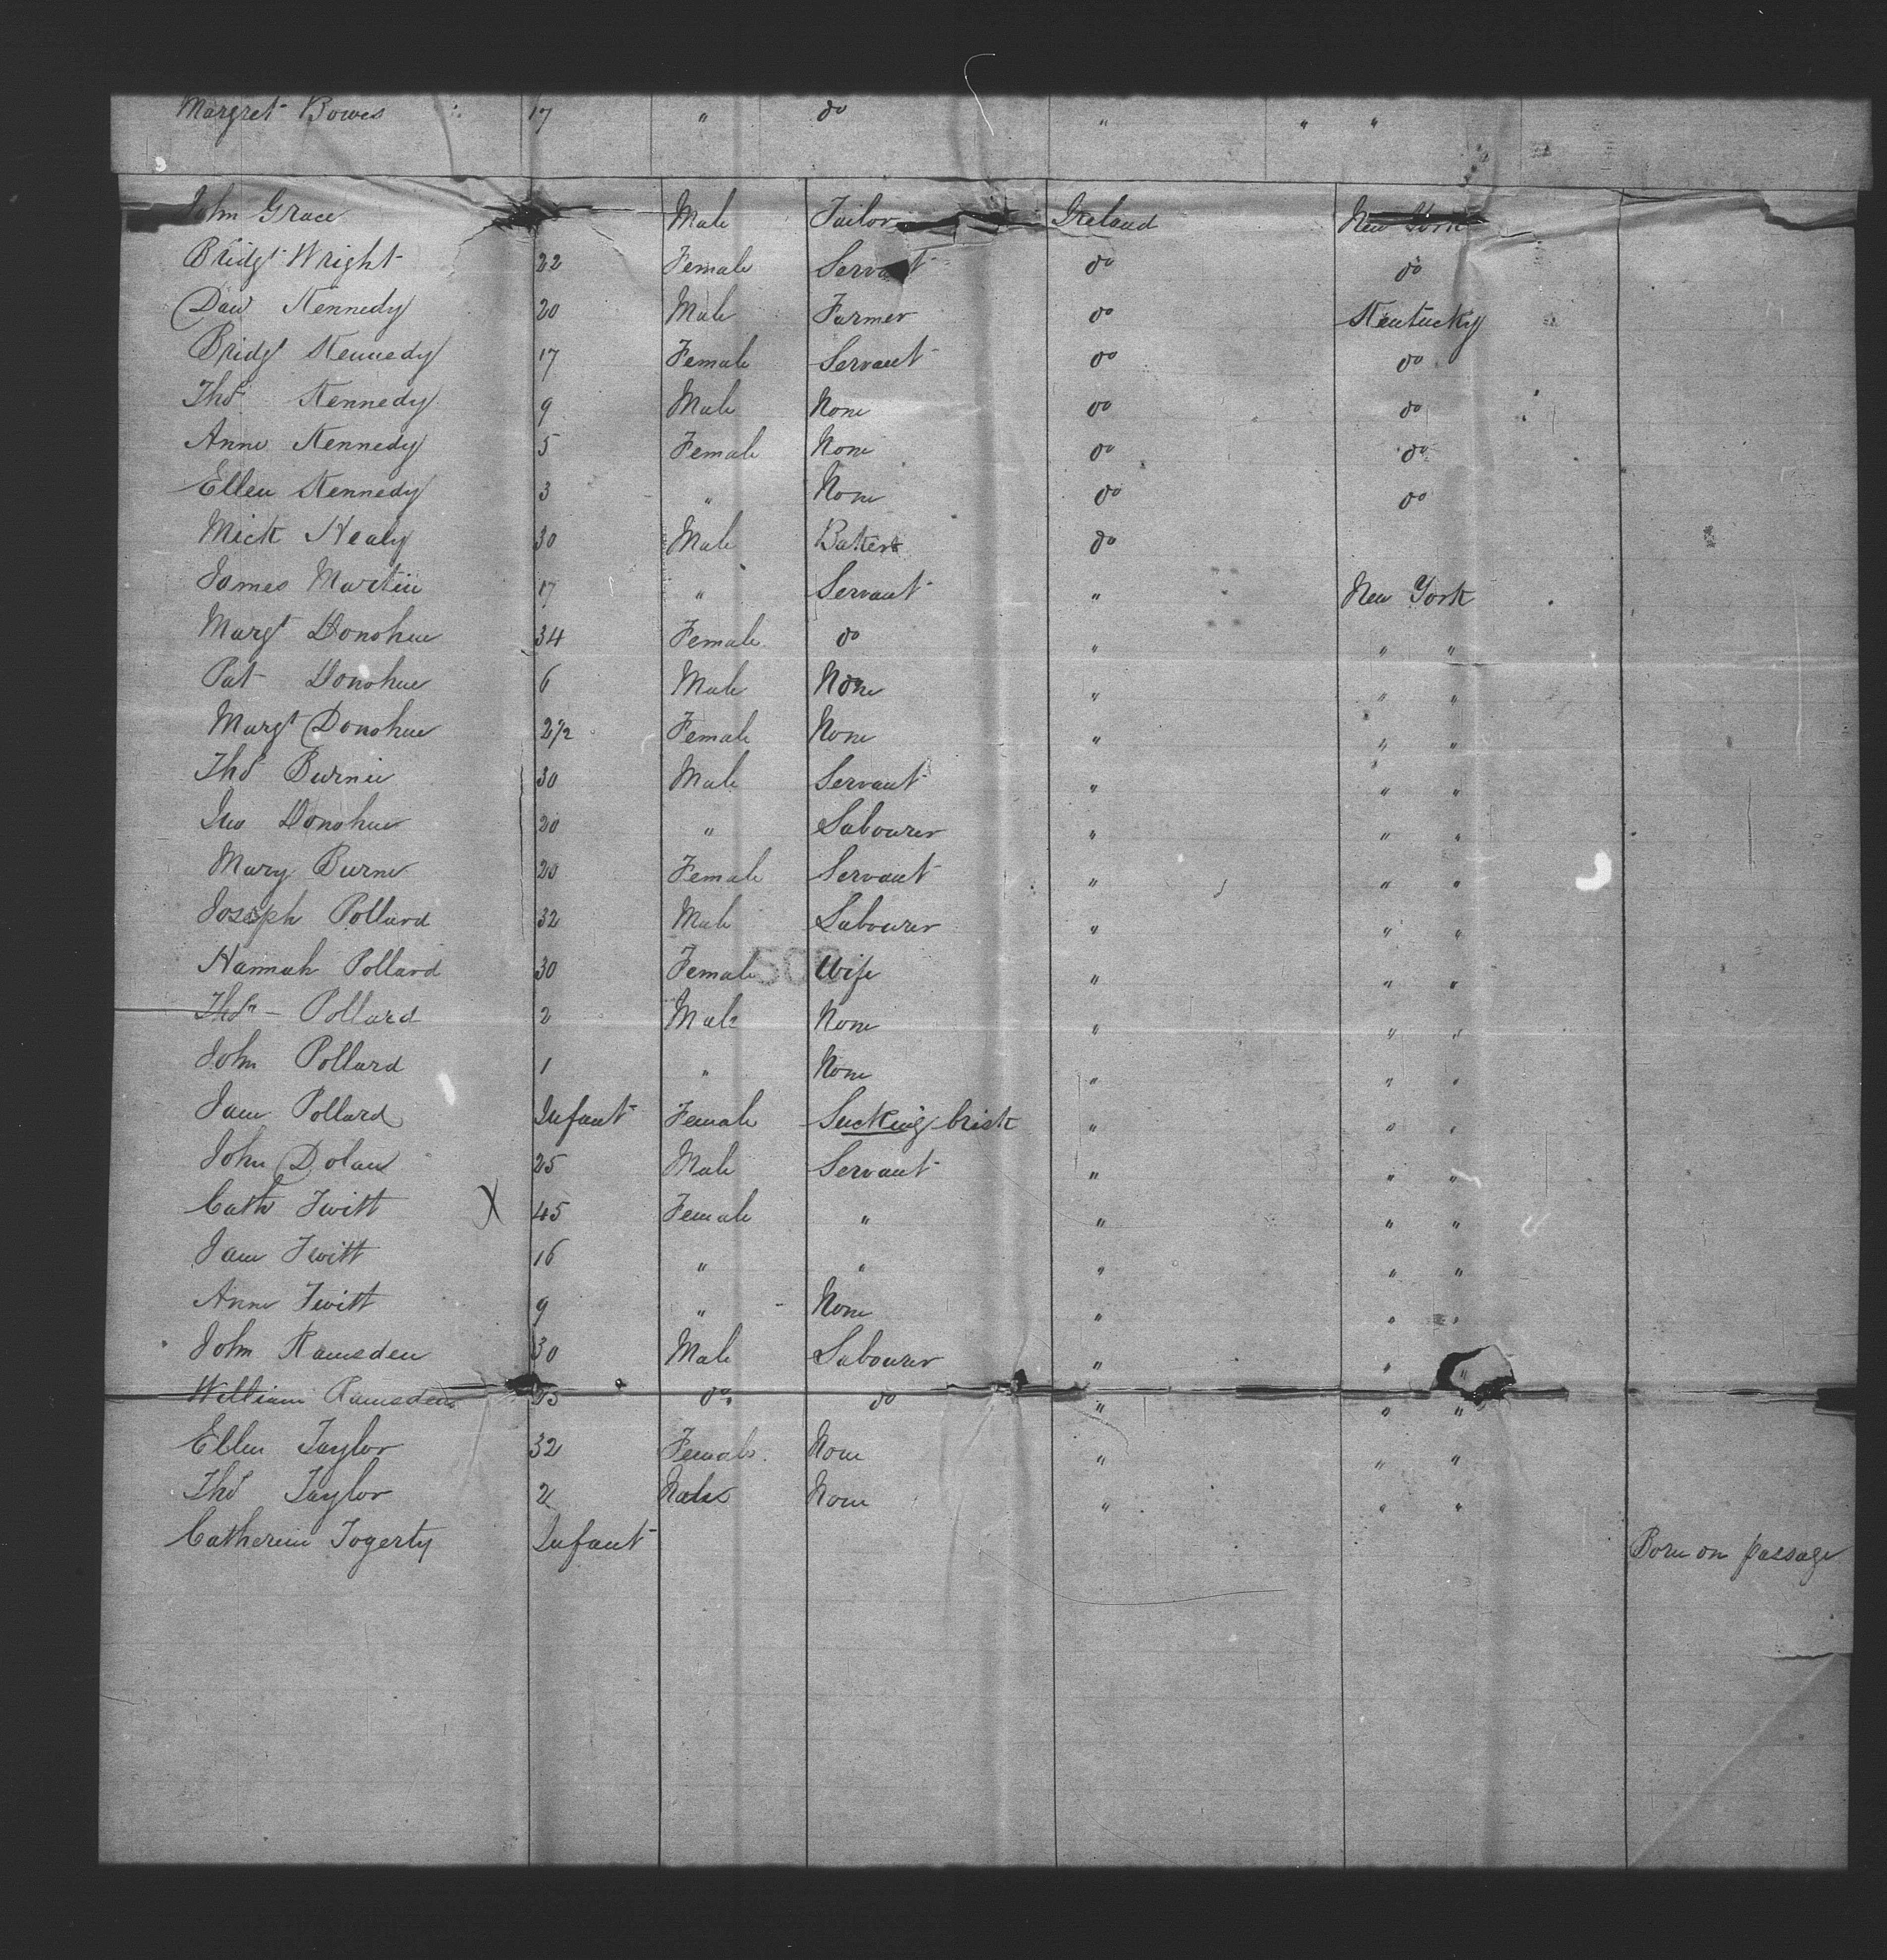 Margret Bowes 17 " do " " "
John Grace Male Tailor Ireland New York
Bridgt Wright 22 Female Servant do do
Dan Kennedy 20 Male Farmer do Kentucky
Bridgt Kennedy 17 Female Servant do do
Thos Kennedy 9 Male None do do
Anne Kennedy 5 Female None do do
Ellen Kennedy 3 " None do do
Mick Healy 30 Male Baker do
James Martin 17 " Servant " New York
Margt Donohue 34 Female do " " "
Pat Donohue 6 Male None " " "
Margt Donohue 2 1/2 Female None " " "
Thos Burnie 30 Male Servant " " "
Jno Donohue 20 " Labourer " " "
Mary Burne 20 Female Servant " " "
Joseph Pollard 32 Male Labourer " " "
Hannah Pollard 30 Female Wife " " "
Thos Pollard 2 Male None " " "
John Pollard 1 " None " " "
Jane Pollard Infant Female Sucking brisk " " "
John Dolan 25 Male Servant " " "
Cath Twitt X 45 Female " " " "
Jane Twitt 16 " " " " "
Anne Twitt 9 " None " " "
John Ramsden 30 Male Labourer " " "
William Ramsden 25 do do " " "
Ellen Taylor 32 Female None " " "
Thos Taylor 2 Male None " " "
Catherine Fogerty Infant Born on passage